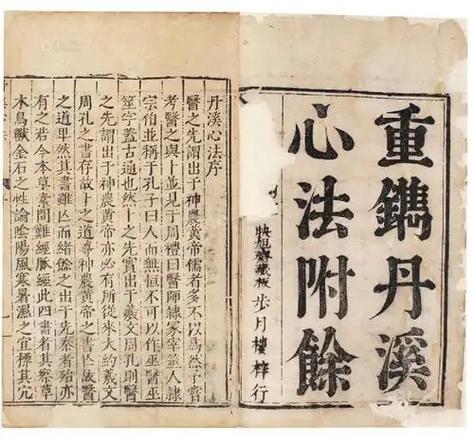 重鐫丹溪
心法附餘
映旭齋藏板
步月樓梓行
丹溪心法序
醫之先謂出于神農黃帝儒者多不以為然予嘗
考醫之與卜並見于周禮曰醫師隸冢宰筮人隸
宗伯並稱于孔子曰人而無恒不可以作巫醫巫
筮字蓋古通也然卜之先實出于羲文周孔則醫
之先謂出于神農黃帝亦必有所從來大約羲文
周孔之書存故卜之道尊神農黃帝之書亡故醫
之道卑然其書雖亡而緒餘之出于先秦者殆亦
有之若今本草素問難經脈經此四書者其察草
木鳥獸金石之性論陰陽風寒暑濕之宜標其穴